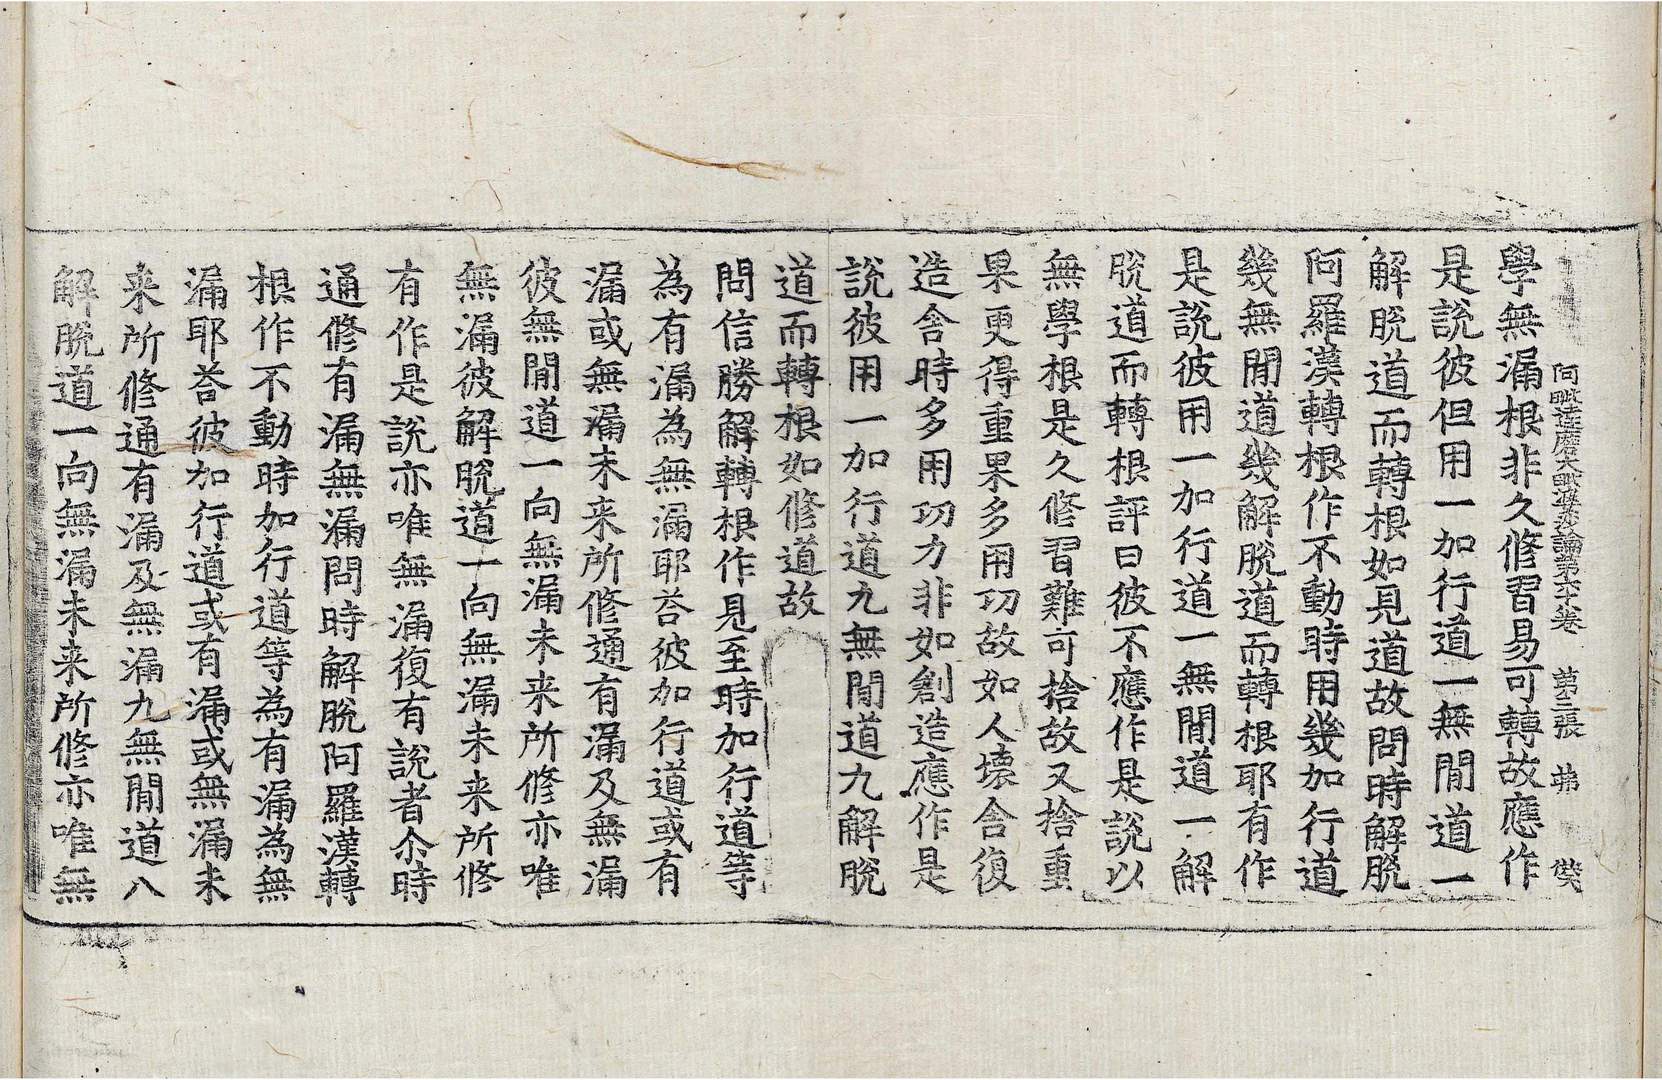 阿毗達磨大毗婆沙論第六十八卷 第三張 弟
學無漏根非久修習易可轉故應作
是說彼但用一加行道一無閒道一
解脫道而轉根如見道故問時解脫
阿羅漢轉根作不動時用幾加行道
幾無閒道幾解脫道而轉根耶有作
是說彼用一加行道一無閒道一解
脫道而轉根評曰彼不應作是說以
無學根是久修習難可捨故又捨重
果更得重果多用功故如人壞舍復
造舍時多用功力非如創造應作是
說彼用一加行道九無閒道九解脫
道而轉根如修道故
問信勝解轉根作見至時加行道等
為有漏為無漏耶荅彼加行道或有
漏或無漏未来所修通有漏及無漏
彼無閒道一向無漏未来所修亦唯
無漏彼解脫道一向無漏未来所修
有作是說亦唯無漏復有說者尒時
通修有漏無漏問時解脫阿羅漢轉
根作不動時加行道等為有漏為無
漏耶荅彼加行道或有漏或無漏未
来所修通有漏及無漏九無閒道八
解脫道一向無漏未来所修亦唯無